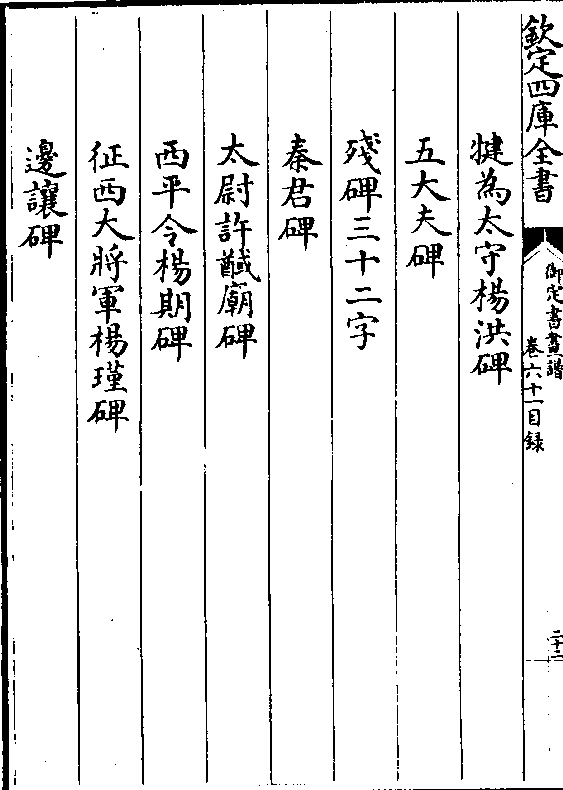 欽定四庫全書
御定書畫譜
卷六十一目録
二十二
犍為太守楊洪碑
五大夫碑
殘碑三十二字
秦君碑
太尉許馘廟碑
西平令楊期碑
征西大將軍楊瑾碑
邊讓碑